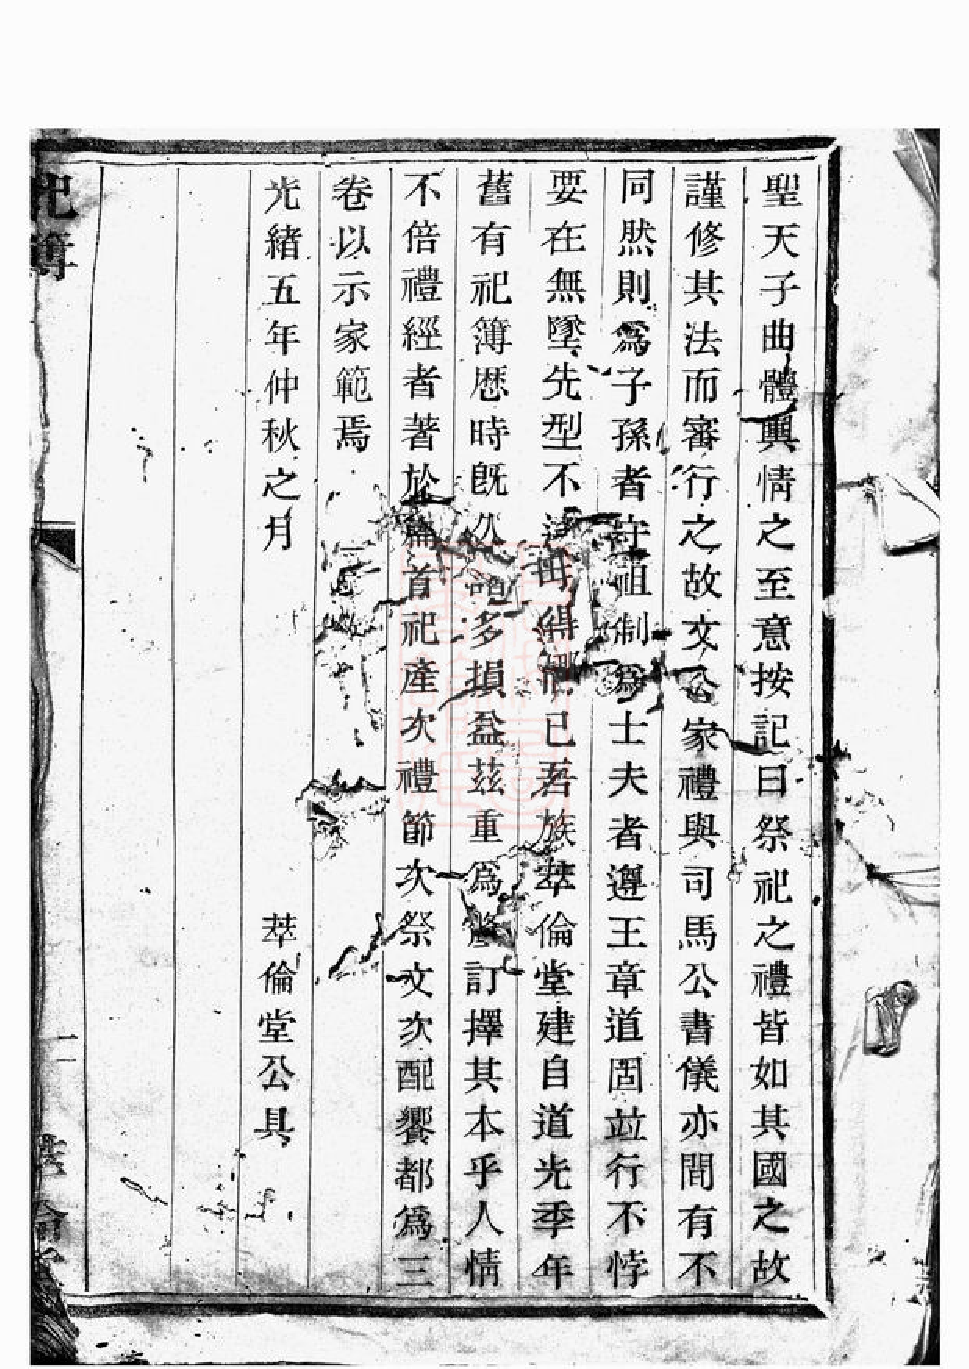 聖天子曲體輿情之至意按記曰祭祀之禮皆如其國之故
謹修其法而審行之故文公家禮與司馬公書儀亦間有不
同然則爲子孫者守祖制爲士夫者遵王章道固竝行不悖
要在無墜先型不已吾族萃倫堂建自道光季年
舊有祀簿歷時旣久多損益茲重爲修訂擇其本乎人情
不倍禮經者著於篇首祀產次禮節次祭文次配饗都爲三
卷以示家範焉
光緒五年仲秋之月 萃倫堂公具
祀簿 萃倫